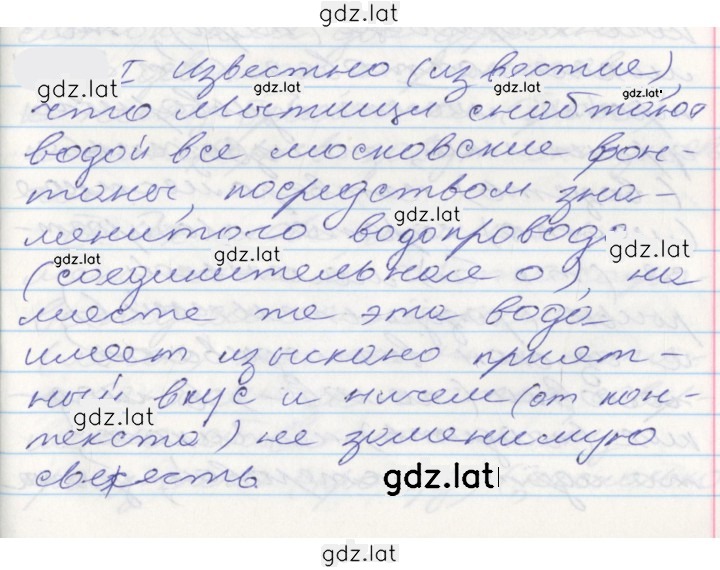 gdz.lat
I Известно (известие)
gdz.lat gdz.lat gdz.lat
что Мытищи снабжают
водой все московские фон-
таны, посредством зна-
gdz.lat
менитого водопровод
gdz.lat gdz.lat gdz.lat
(соединительная о), на
месте же эта вода
имеет изыскано прият-
ный вкус и ничем (от кон-
gdz.lat
текста) не заменимую
свежесть
gdz.lat
gdz.lat